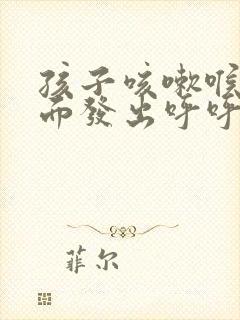 孩子咳嗽喉
而發出呼呼
菲尔